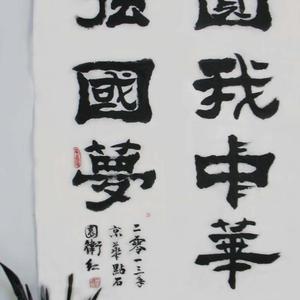 圓我中華
强國夢
二零一三年
京華點石
園衛紅